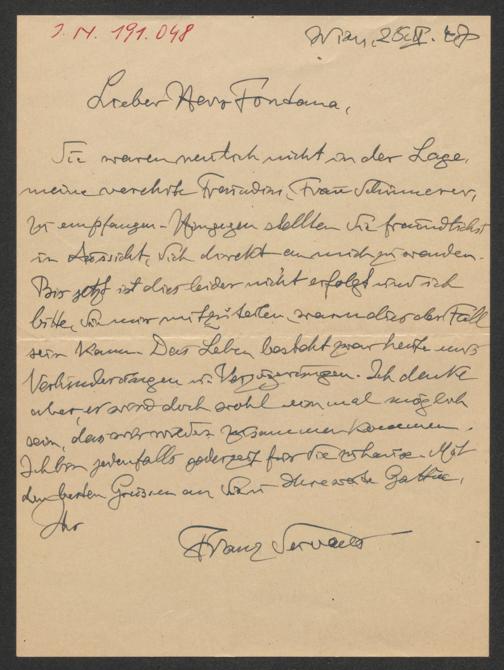 J. N. 191.048
Wien, 25.II. 40
Lieber Herr Fontana,
Sie waren neulich nicht in der Lage,
meine verehrte Freundin, Frau
zu empfangen. Hingegen stellten Sie freundlichst
in Aussicht, sich direkt an mich zu wenden.
Bis jetzt ist dies leider nicht erfolgt und ich
bitte, Sie mir mitzuteilen, wann dies der Fall
sein kann. Das Leben besteht zwar heute aus
Verhinderungen u. Verzögerungen. Ich denke
aber, es wird doch wohl einmal möglich
sein, dass wir wieder zusammen kommen.
Ich bin jedenfalls jederzeit für Sie zuhause. Mit
den besten Grüssen an Ihre werte Gattin,
Ihr
Franz Servaes